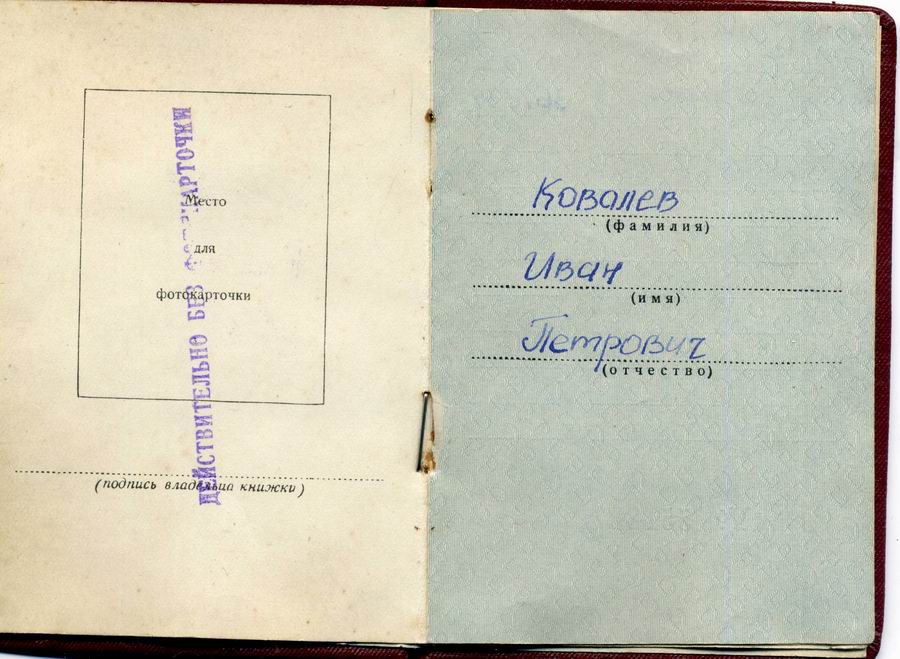 Место
для
фотокарточки
ДЕЙСТВИТЕЛЬНО БЕЗ
(подпись владельца книжки)
Ковалев
(фамилия)
Иван
(имя)
Петрович
(отчество)